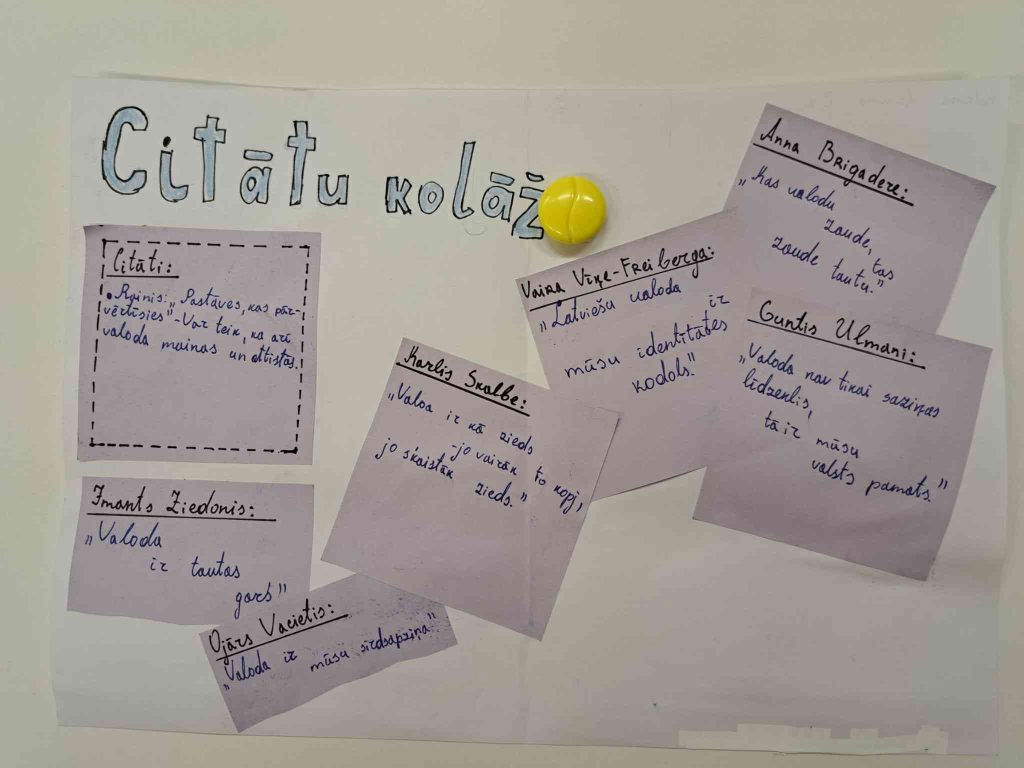 Citātu kolāž
Citāti:
• Rainis: „Pastāvēs, kas pār-
vērtīsies" - Var teik, ka arī
valoda mainas un attīstas.
Imants Ziedonis:
„Valoda
ir tautas
gars"
Ojārs Vacietis:
„Valoda ir mūsu sirdsapziņa"
Karlis Skalbe:
„Valoa ir kā zieds
-jo vairāk to kopj,
jo skaistāk zieds."
Vaira Vīķe-Freiberga:
„Latviešu valoda ir
mūsu identitātes
kodols."
Anna Brigadere:
„Kas valodu
zaude, tas
zaude tautu."
Guntis Ulmani:
„Valoda nav tikai saziņas
līdzeklis,
tā ir mūsu
valsts pamats."